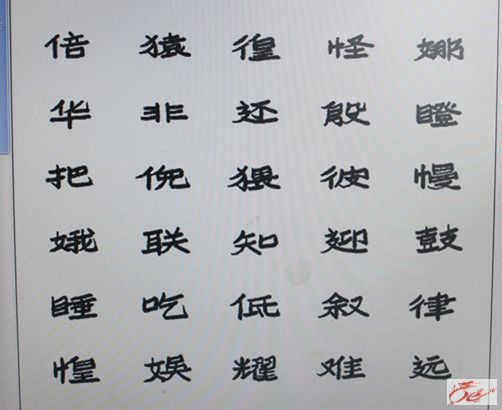 倍 猿 徨 怪 娜
华 非 还 殷 瞪
把 倪 猥 彼 慢
娥 联 知 迎 鼓
睡 吃 低 叙 律
惶 娱 耀 难 远